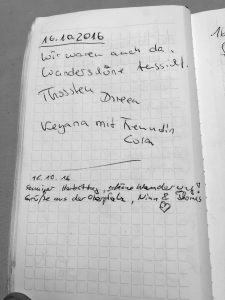 16.10.2016
Wir waren auch da.
Wunderschöne Aussicht.
Thorsten Doreen
Kegana mit Freundin
Cola
16.10.16
Sonniger Herbsttag, schöne Wanderung!
Grüße aus der Oberpfalz, Nina & Thomas